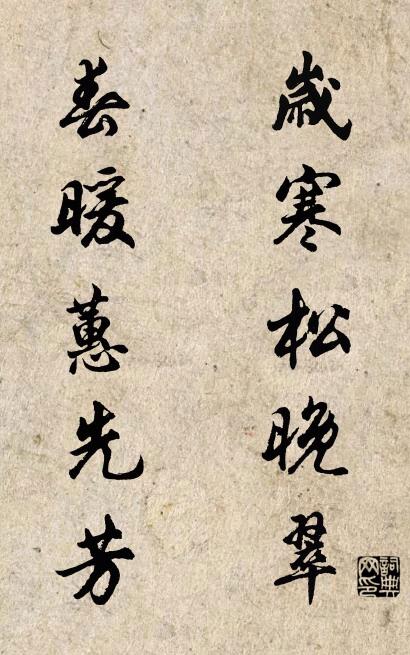 歲寒松晚翠
春暖蕙先芳
詞典網印